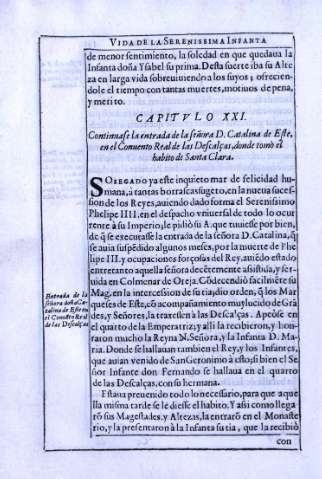 VIDA DE LA SERENISSIMA INFANTA
de menor sentimiento, la soledad en que quedaua la
Infanta doña Ysabel su prima. Desta suerte iba su Alte
za en larga vida sobreuiuiendo a los suyos, ofrecien-
dole el tiempo con tantas muertes, motiuos de pena,
y merito.
CAPITVLO XXI.
Continuase la entrada de la señora D. Catalina de Este,
en el Conuento Real de las Descalças, donde tomò el
habito de Santa Clara.
SOSEGADO ya este inquieto mar de felicidad hu-
mana, à tantas borrascas sugeto, en la nueua suces-
sion de los Reyes, auiendo dado forma el Serenissimo
Phelipe IIII. en el despacho vniuersal de todo lo ocur
rente à su Imperio, le pidiò su A. que tuuiese por bien,
de q̃ se executasse la entrada de la señora D. Catalina, q̃
se auia suspẽdido algunos meses, por la muerte de Phe
lipe III. y ocupaciones forçosas del Rey, auiẽdo estado
entretanto aquella señora decẽtemente asistida, y ser-
uida en Colmenar de Oreja. Cõdecendiò facilmẽte su
Mag. en la intercession de su tia, dio orden, q̃ los Mar
queses de Este, cõ acompañamiento muy lucido de Grã
des, y Señores, la traxessen à las Descalças. Apeòse en
el quarto de la Emperatriz; y alli la recibieron, y hon-
raron mucho la Reyna N. Señora, y la Infanta D. Ma-
ria. Donde se hallauan tambien el Rey, y los Infantes,
que auian venido de San Geronimo à esto, si bien el Se
ñor Infante don Fernando se hallaua en el quarto
de las Descalças, con su hermana.
Estaua preuenido todo lo necessario, para que aque
lla misma tarde se le diesse el habito. Y asi como llega
rõ sus Magestades, y Altezas, la entrarõ en el Monaste
rio, y la presentaron à la Infanta su tia, que la recibiò
con
Entrada de la
señora doña Ca
talina de Este en
el Conuẽto Real
de las Descalças